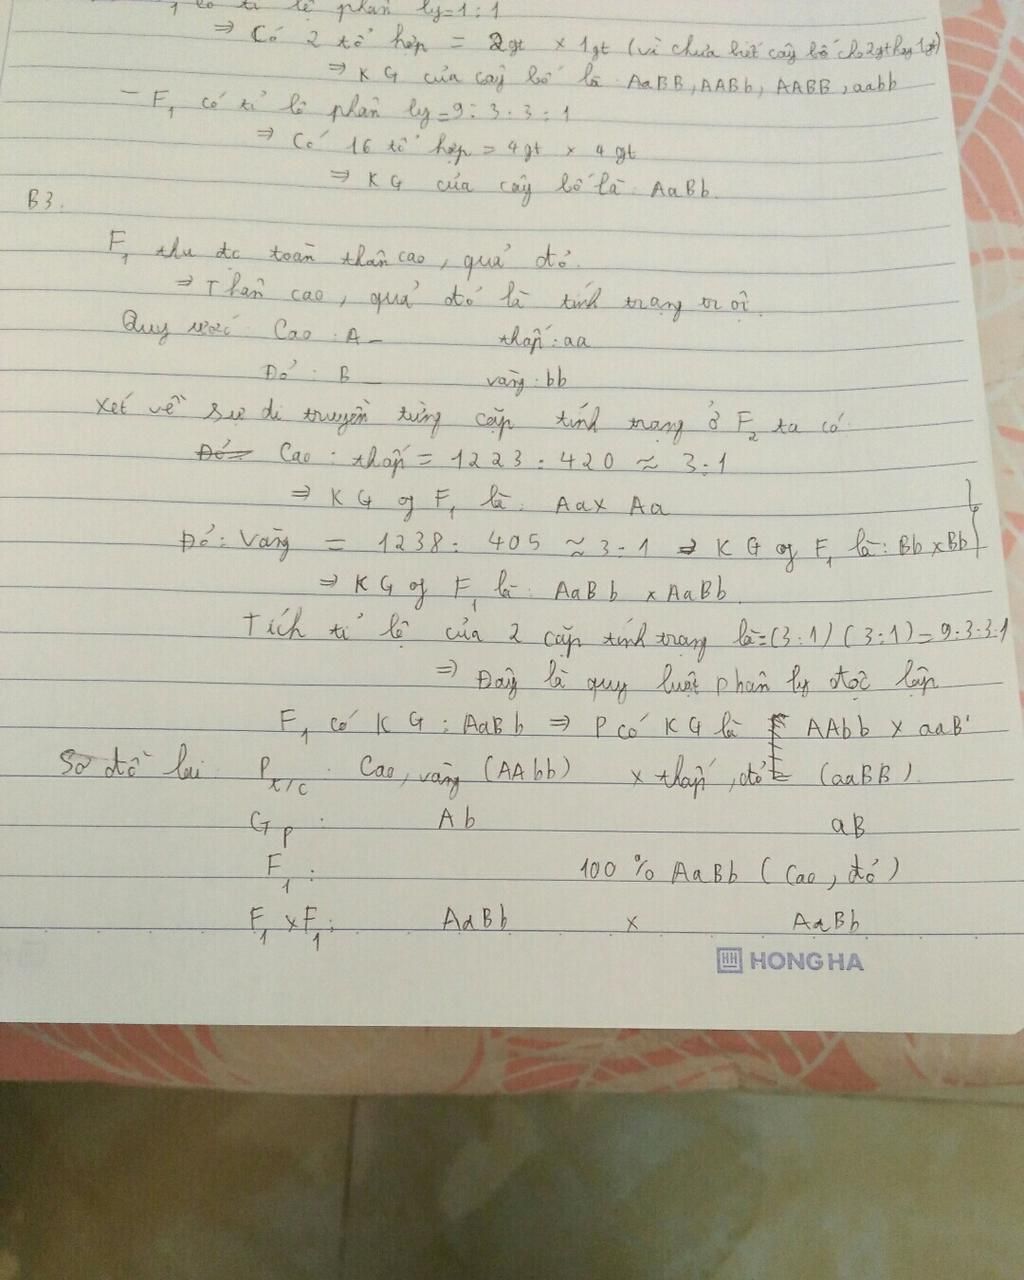 có tỉ lệ phân ly = 1 : 1
⇒ Có 2 tổ hợp = 2gt × 1gt (vì chưa biết cây bố cho 2gt hay 1gt)
⇒ KG của cây bố là AaBB, AABb, AABB, aabb
- F₁ có tỉ lệ phân ly = 9 : 3 : 3 : 1
⇒ Có 16 tổ hợp = 4gt × 4gt
⇒ KG của cây bố là: AaBb.
B3.
F₁ thu đc toàn thân cao, quả đỏ.
⇒ Thân cao, quả đỏ là tính trạng trội.
Quy ước: Cao : A_ thấp : aa
Đỏ : B_ vàng : bb
Xét về sự di truyền từng cặp tính trạng ở F₂ ta có
Cao : thấp = 1223 : 420 ≈ 3 : 1
⇒ KG of F₁ là: Aa × Aa
Đỏ : Vàng = 1238 : 405 ≈ 3 : 1 ⇒ KG of F₁ là : Bb × Bb
⇒ KG of F₁ là: AaBb × AaBb
Tích tỉ lệ của 2 cặp tính trạng là = (3 : 1) (3 : 1) = 9 : 3 : 3 : 1
⇒ Đây là quy luật phân ly độc lập
F₁ có KG : AaBb ⇒ P có KG là AAbb × aaB
Sơ đồ lai P t/c : Cao, vàng (AAbb) × thấp, đỏ (aaBB)
G P : Ab aB
F₁ : 100 % AaBb ( Cao, đỏ )
F₁ × F₁ : AaBb × AaBb
HH HONG HA